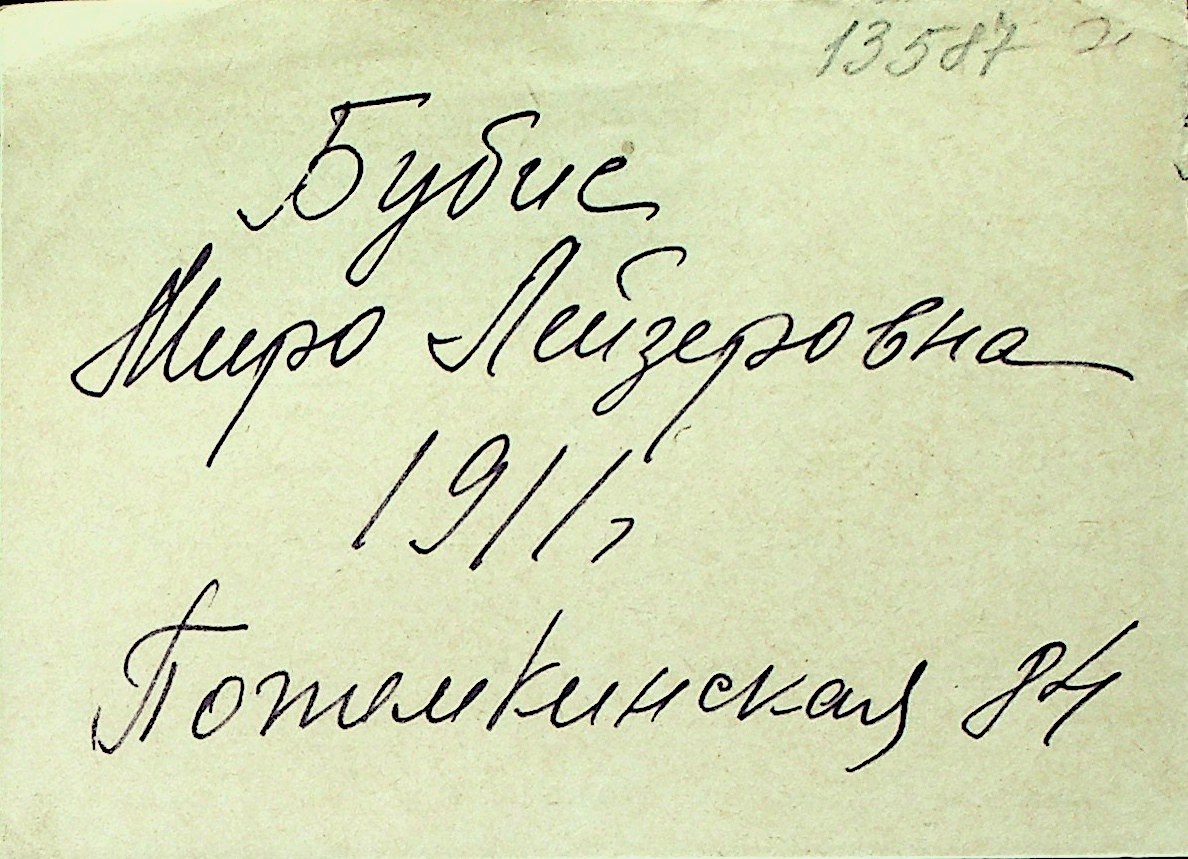 13587
Бубис
Миро Лейзеровна
1911г
Потемкинская 84